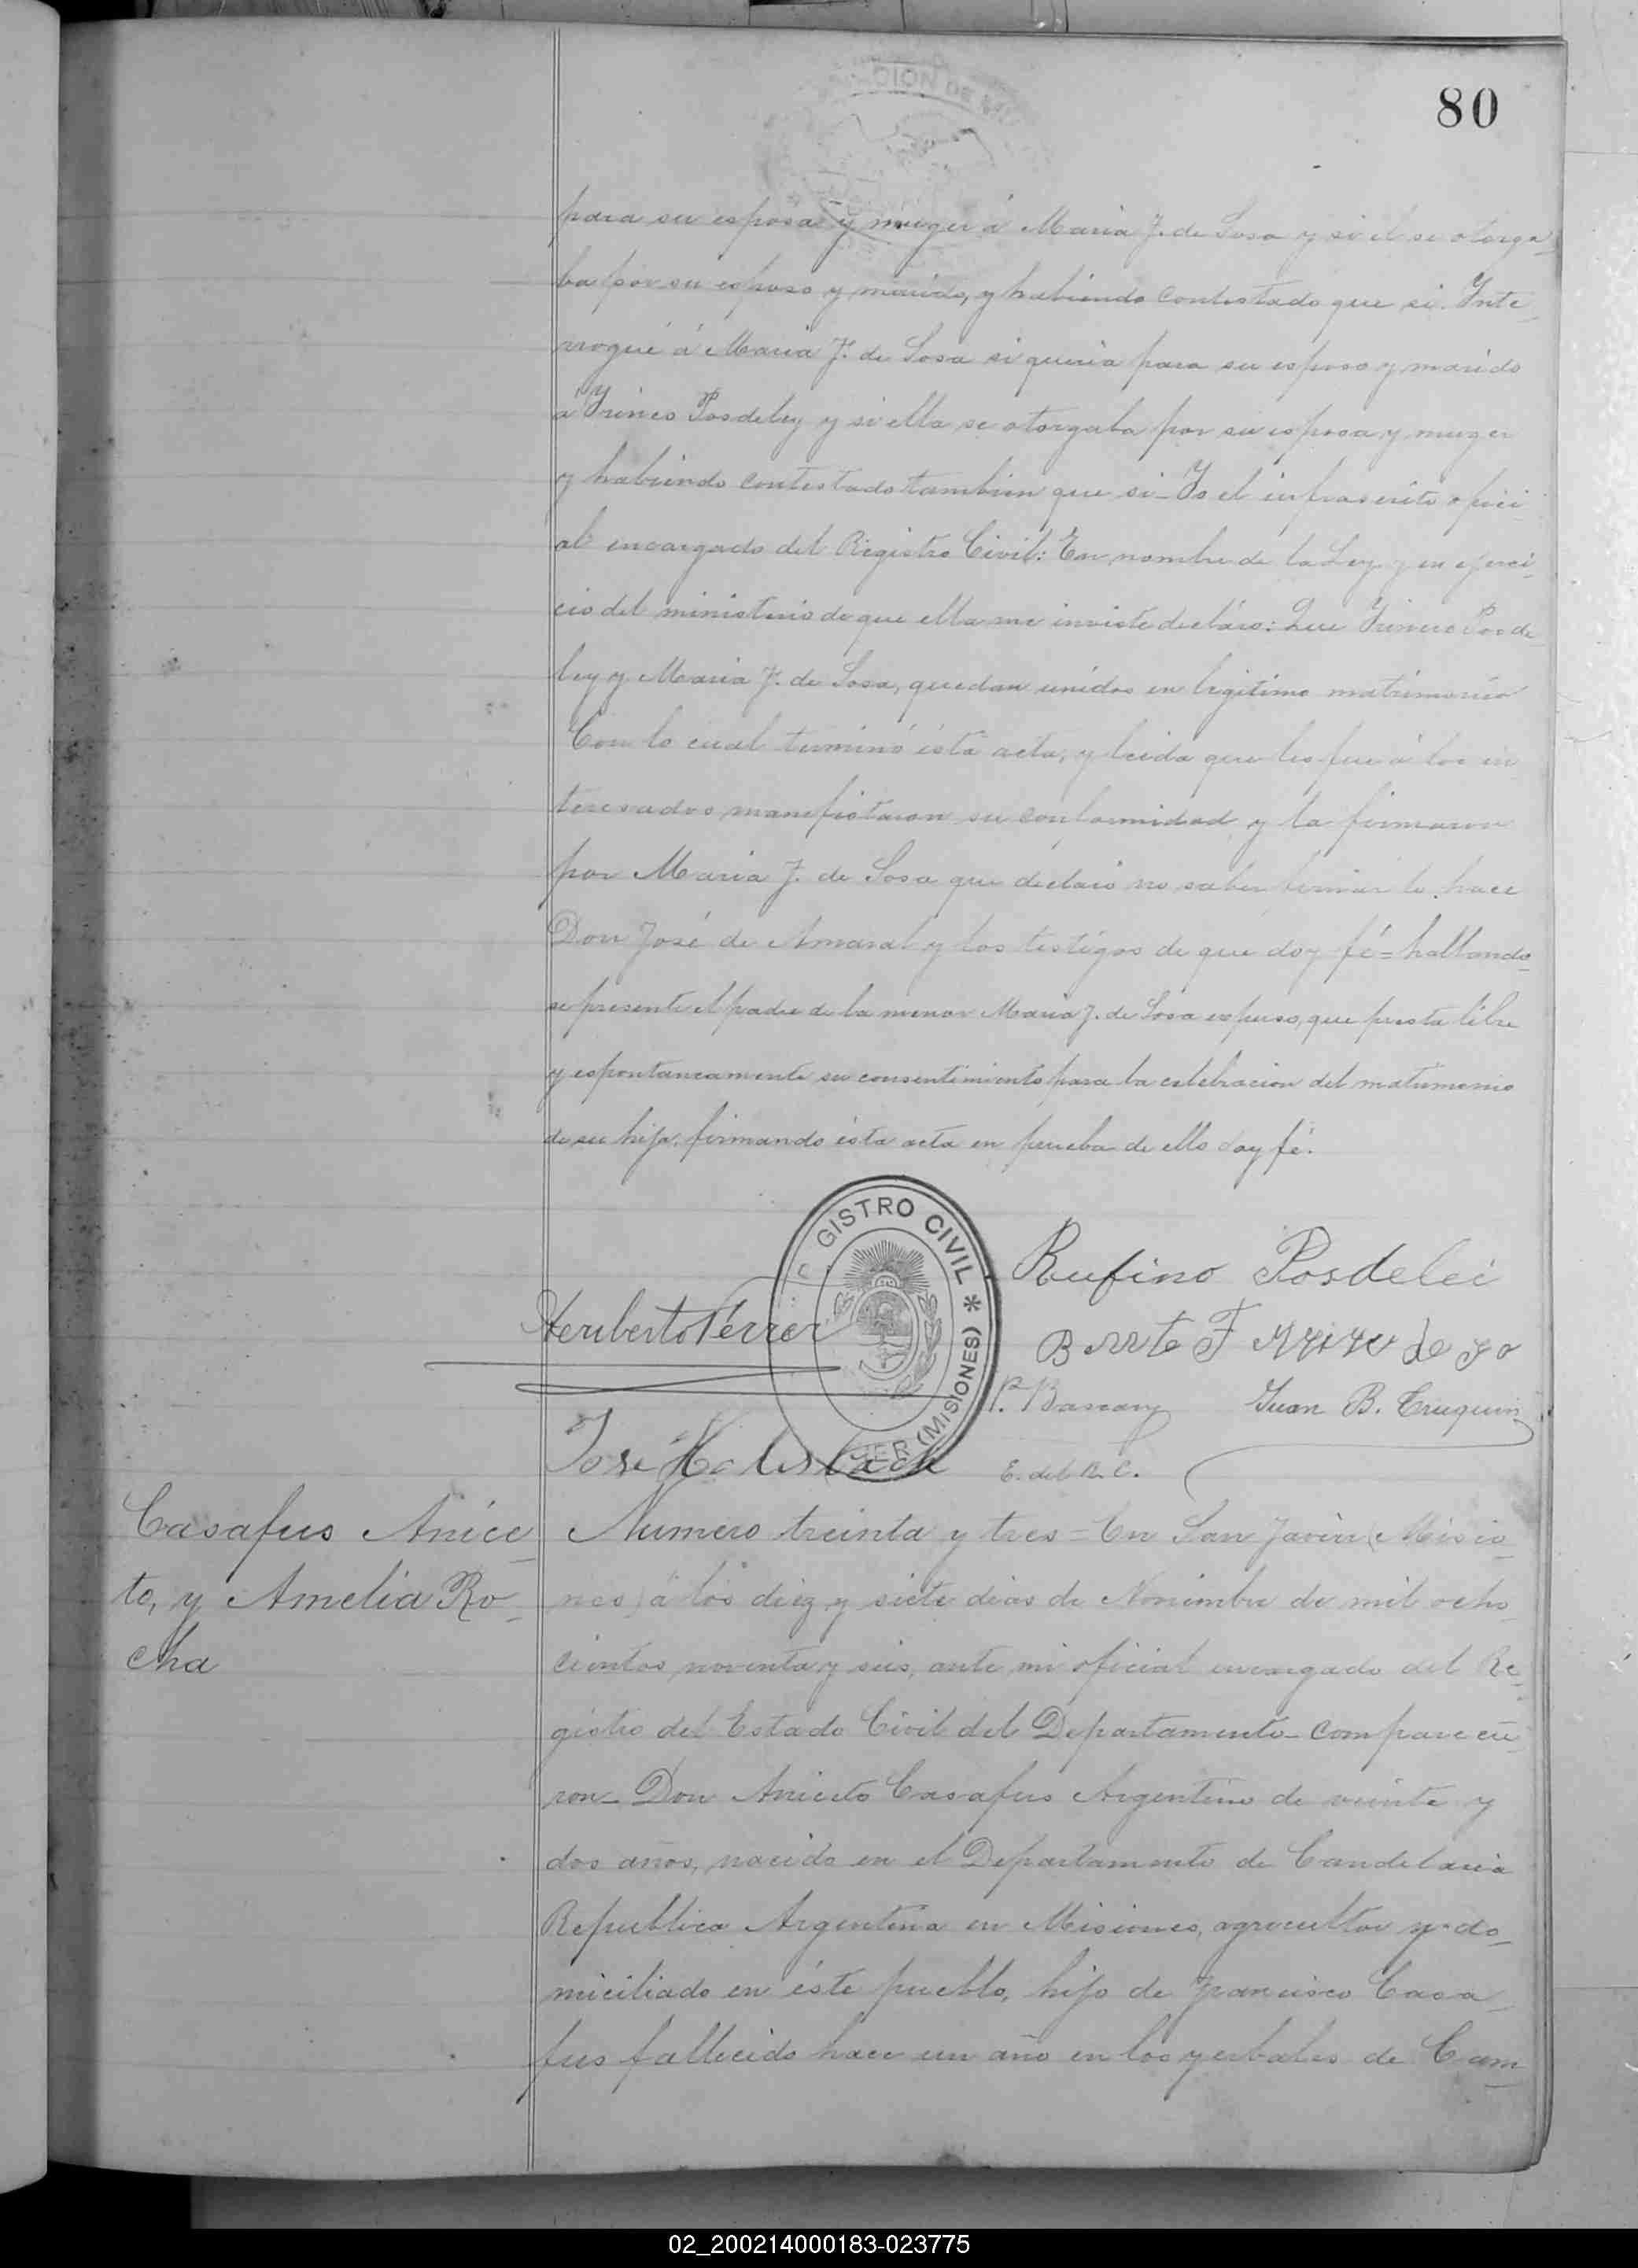 80
para su esposa y muger á Maria J. de Sosa y si él se otorga
ba por su esposo y marido, y habiendo contestado que si. Inte_
rrogué á Maria J. de Sosa si queria para su esposo y marido
á Irineo Posdeley y si ella se otorgaba por su esposa y muger
y habiendo contestado tambien que si_ Yo el infrascrito ofici
al encargado del Registro Civil: En nombre de la Ley y en ejerci_
cio del ministerio de que ella me inviste declaro: Que Irineo Posde_
ley y Maria J. de Sosa, quedan unidos en legitimo matrimonio
Con lo cual terminó ésta acta, y leida que les fue á los in
teresados manifestaron su conformidad y la firmaron
por Maria J. de Sosa que declaró no saber firmar lo hace
Don José de Amaral y los testigos de que doy fé = hallando_
se presente el padre de la menor Maria J. de Sosa expuso, que presta libre
y espontaneamente su consentimiento para la celebracion del matrimonio
de su hija, firmando ésta acta en prueba de ello doy fé.
GISTRO CIVIL * (MISIONES)
Rufino Posdelei
Heriberto Ferrer
P. Bascary Juan B. Truquin
José
E. del R. C.
Casafus Anice_
to, y Amelia Ro_
cha
Numero treinta y tres = En San Javier (Misio_
nes) á los diez y siete dias de Noviembre de mil ocho_
cientos noventa y seis, ante mi oficial encargado del Re_
gistro del Estado Civil del Departamento_ comparecie_
ron_ Don Aniceto Casafus Argentino de veinte y
dos años, nacido en el Departamento de Candelaria
Republica Argentina en Misiones, agricultor y do_
miciliado en éste pueblo, hijo de Francisco Casa_
fus fallecido hace un año en los yerbales de Cam_
02_200214000183-023775